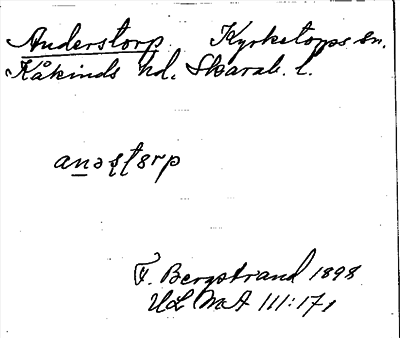 Anderstorp Kyrketorps sn.
Kåkinds hd. Skarab. l.
anəʂʈɵrp
F. Bergstrand 1898
ULMA 111:17,